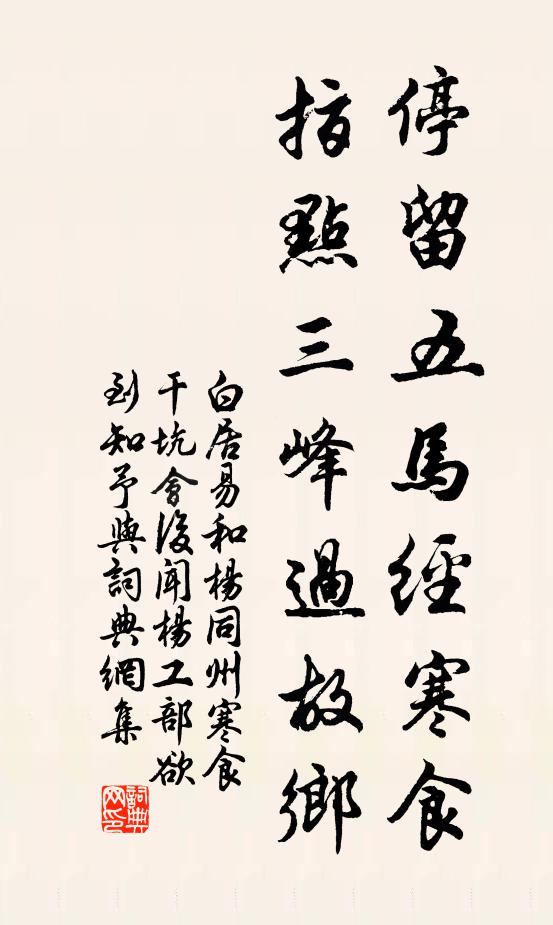 停留五馬經寒食
指點三峰過故鄉
白居易和楊同州寒食
干坑會後聞楊工部欲
到知予與詞典網集
詞典网印